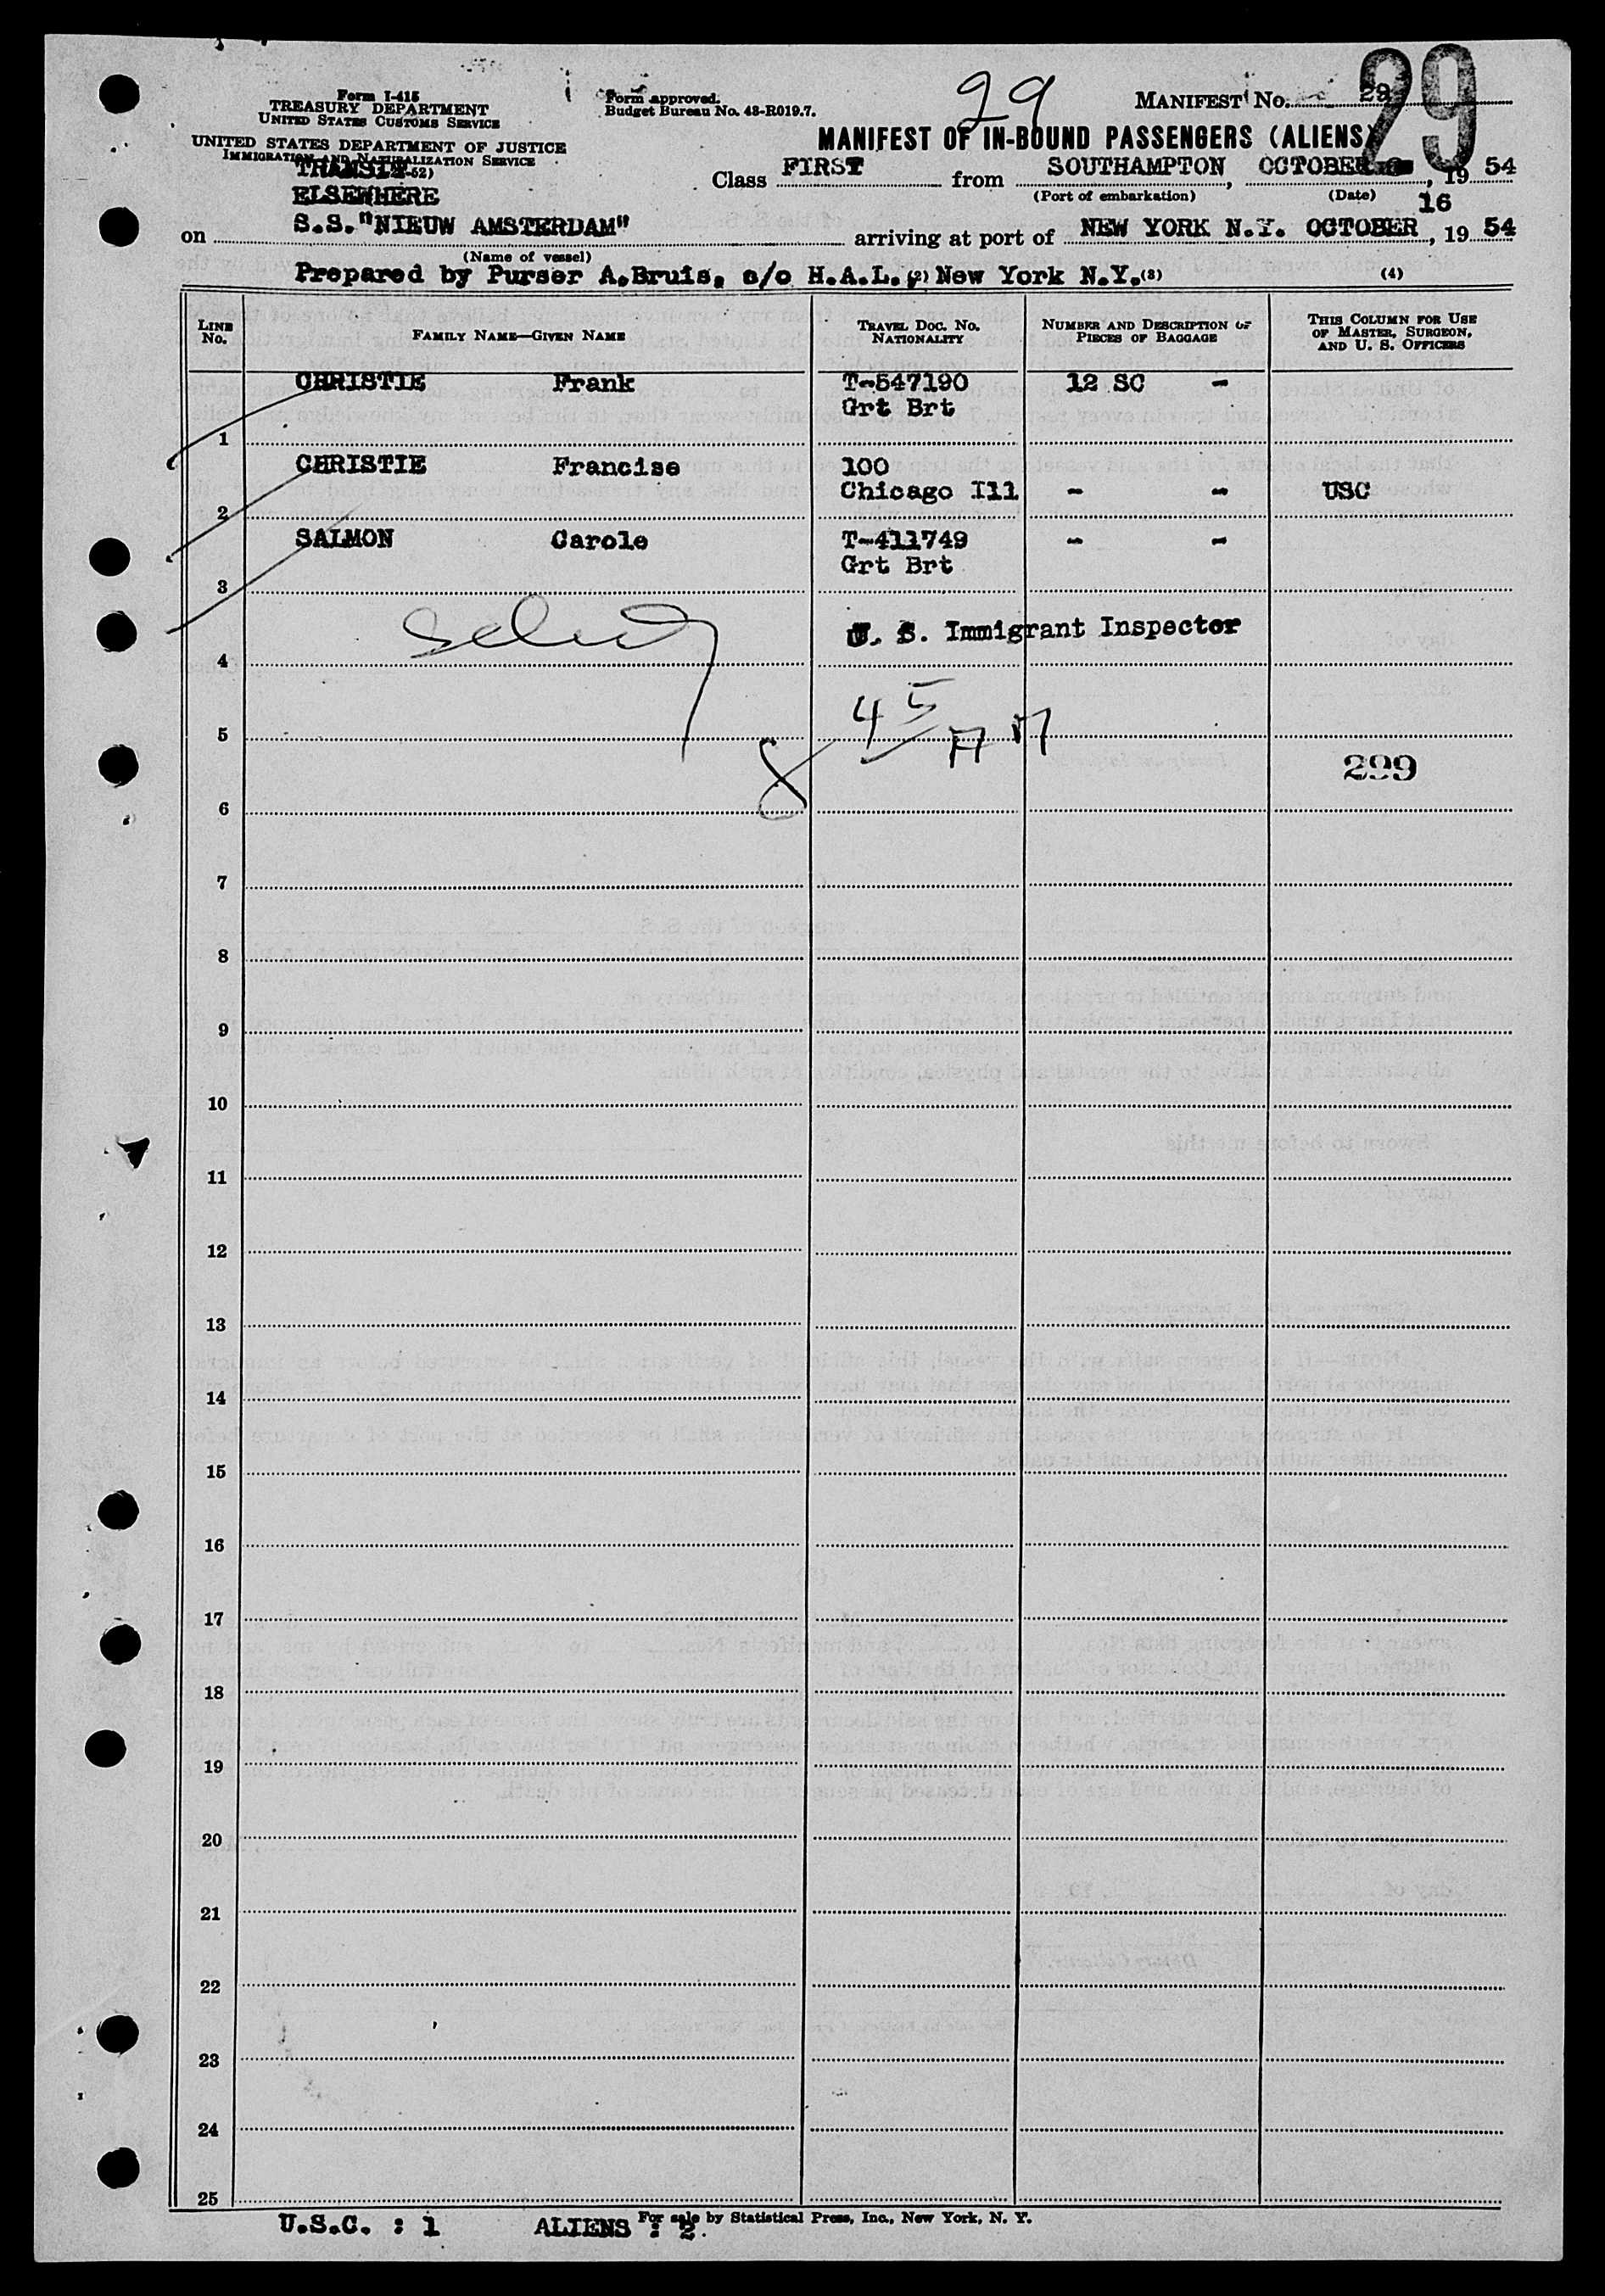 29
Form I-415
TREASURY DEPARTMENT
UNITED STATES CUSTOMS SERVICE
Form approved.
Budget Bureau No. 43-R019.7.
29
MANIFEST No. 29
UNITED STATES DEPARTMENT OF JUSTICE
IMMIGRATION AND NATURALIZATION SERVICE
MANIFEST OF IN-BOUND PASSENGERS (ALIENS)
TRANSIT 52)
ELSEWHERE
Class FIRST from SOUTHAMPTON, OCTOBER, 19 54
(Port of embarkation) (Date)
on S.S."NIEUW AMSTERDAM" arriving at port of NEW YORK N.Y. OCTOBER 16, 19 54
(Name of vessel)
Prepared by Purser A.Bruis, c/o H.A.L. (2) New York N.Y. (3) (4)
LINE No. FAMILY NAME—GIVEN NAME TRAVEL DOC. No. NATIONALITY NUMBER AND DESCRIPTION OF PIECES OF BAGGAGE THIS COLUMN FOR USE OF MASTER, SURGEON, AND U. S. OFFICERS
CHRISTIE Frank T-547190 12 SC -
1 Grt Brt
CHRISTIE Francise 100
2 Chicago Ill - - USC
SALMON Carole T-411749 - -
3 Grt Brt
4 U. S. Immigrant Inspector
5
8 45 AM
299
6
7
8
9
10
11
12
13
14
15
16
17
18
19
20
21
22
23
24
25
For sale by Statistical Press, Inc., New York, N. Y.
U.S.C. : 1 ALIENS : 2.